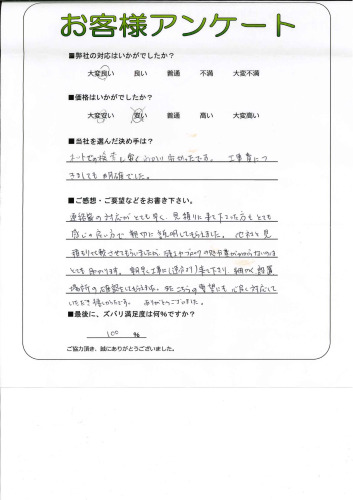 お客様アンケート
■弊社の対応はいかがでしたか?
大変良い 良い 普通 不満 大変不満
■価格はいかがでしたか?
大変安い 安い 普通 高い 大変高い
■当社を選んだ決め手は?
ネットでの検索も早く 分かったです。 工事費につ
きましても明確でした。
■ご感想・ご要望などをお書き下さい。
連絡等の対応がとても早く、見積りに来て下さった方もとても
感じの良い方で親切に説明してもらえました。 他社と見
積もり比較させてもらいましたが、 ブロックの処分費がかからないのは
とても助かります。 工事に 来て下さり、細かく設置
場所の確認をしてもらえ、またこちらの要望にも心良く対応して
いただき ありがとうございました。
■最後に、ズバリ満足度は何%ですか?
100 %
ご協力頂き、誠にありがとうございました。